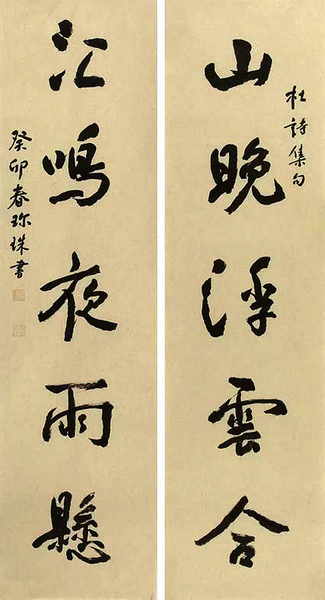 杜詩集句
山晚浮雲合
江鳴夜雨懸
癸卯春珎珠書